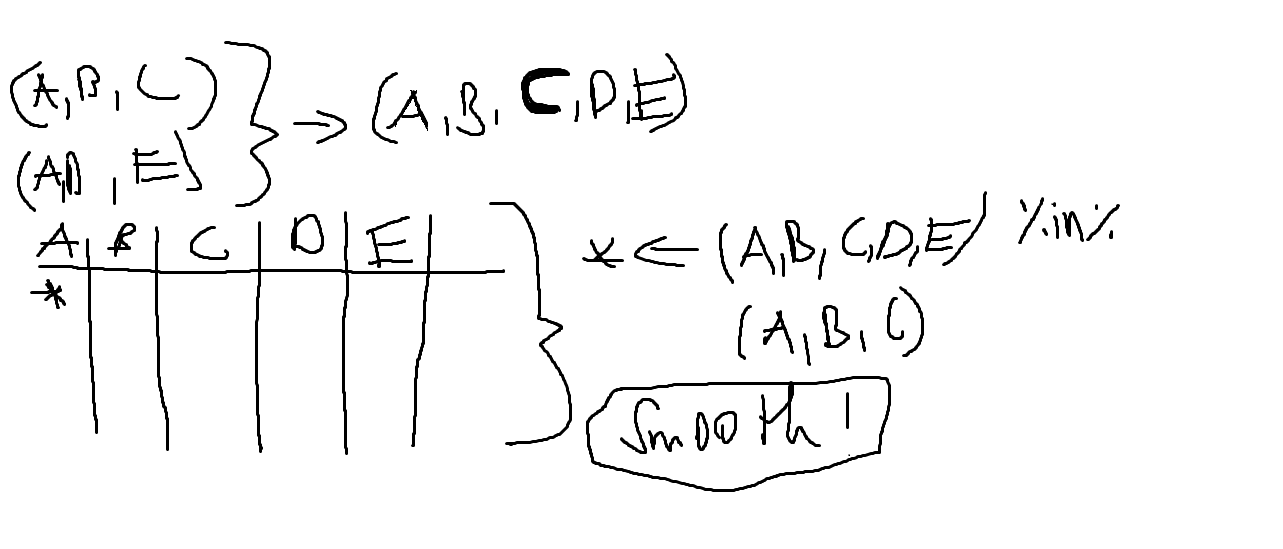 (A, B, C)
(A,D, E)
} → (A, B, C, D, E)
A | B | C | D | E |
*
} * ← (A, B, C, D, E) %in%
(A, B, C)
Smooth !